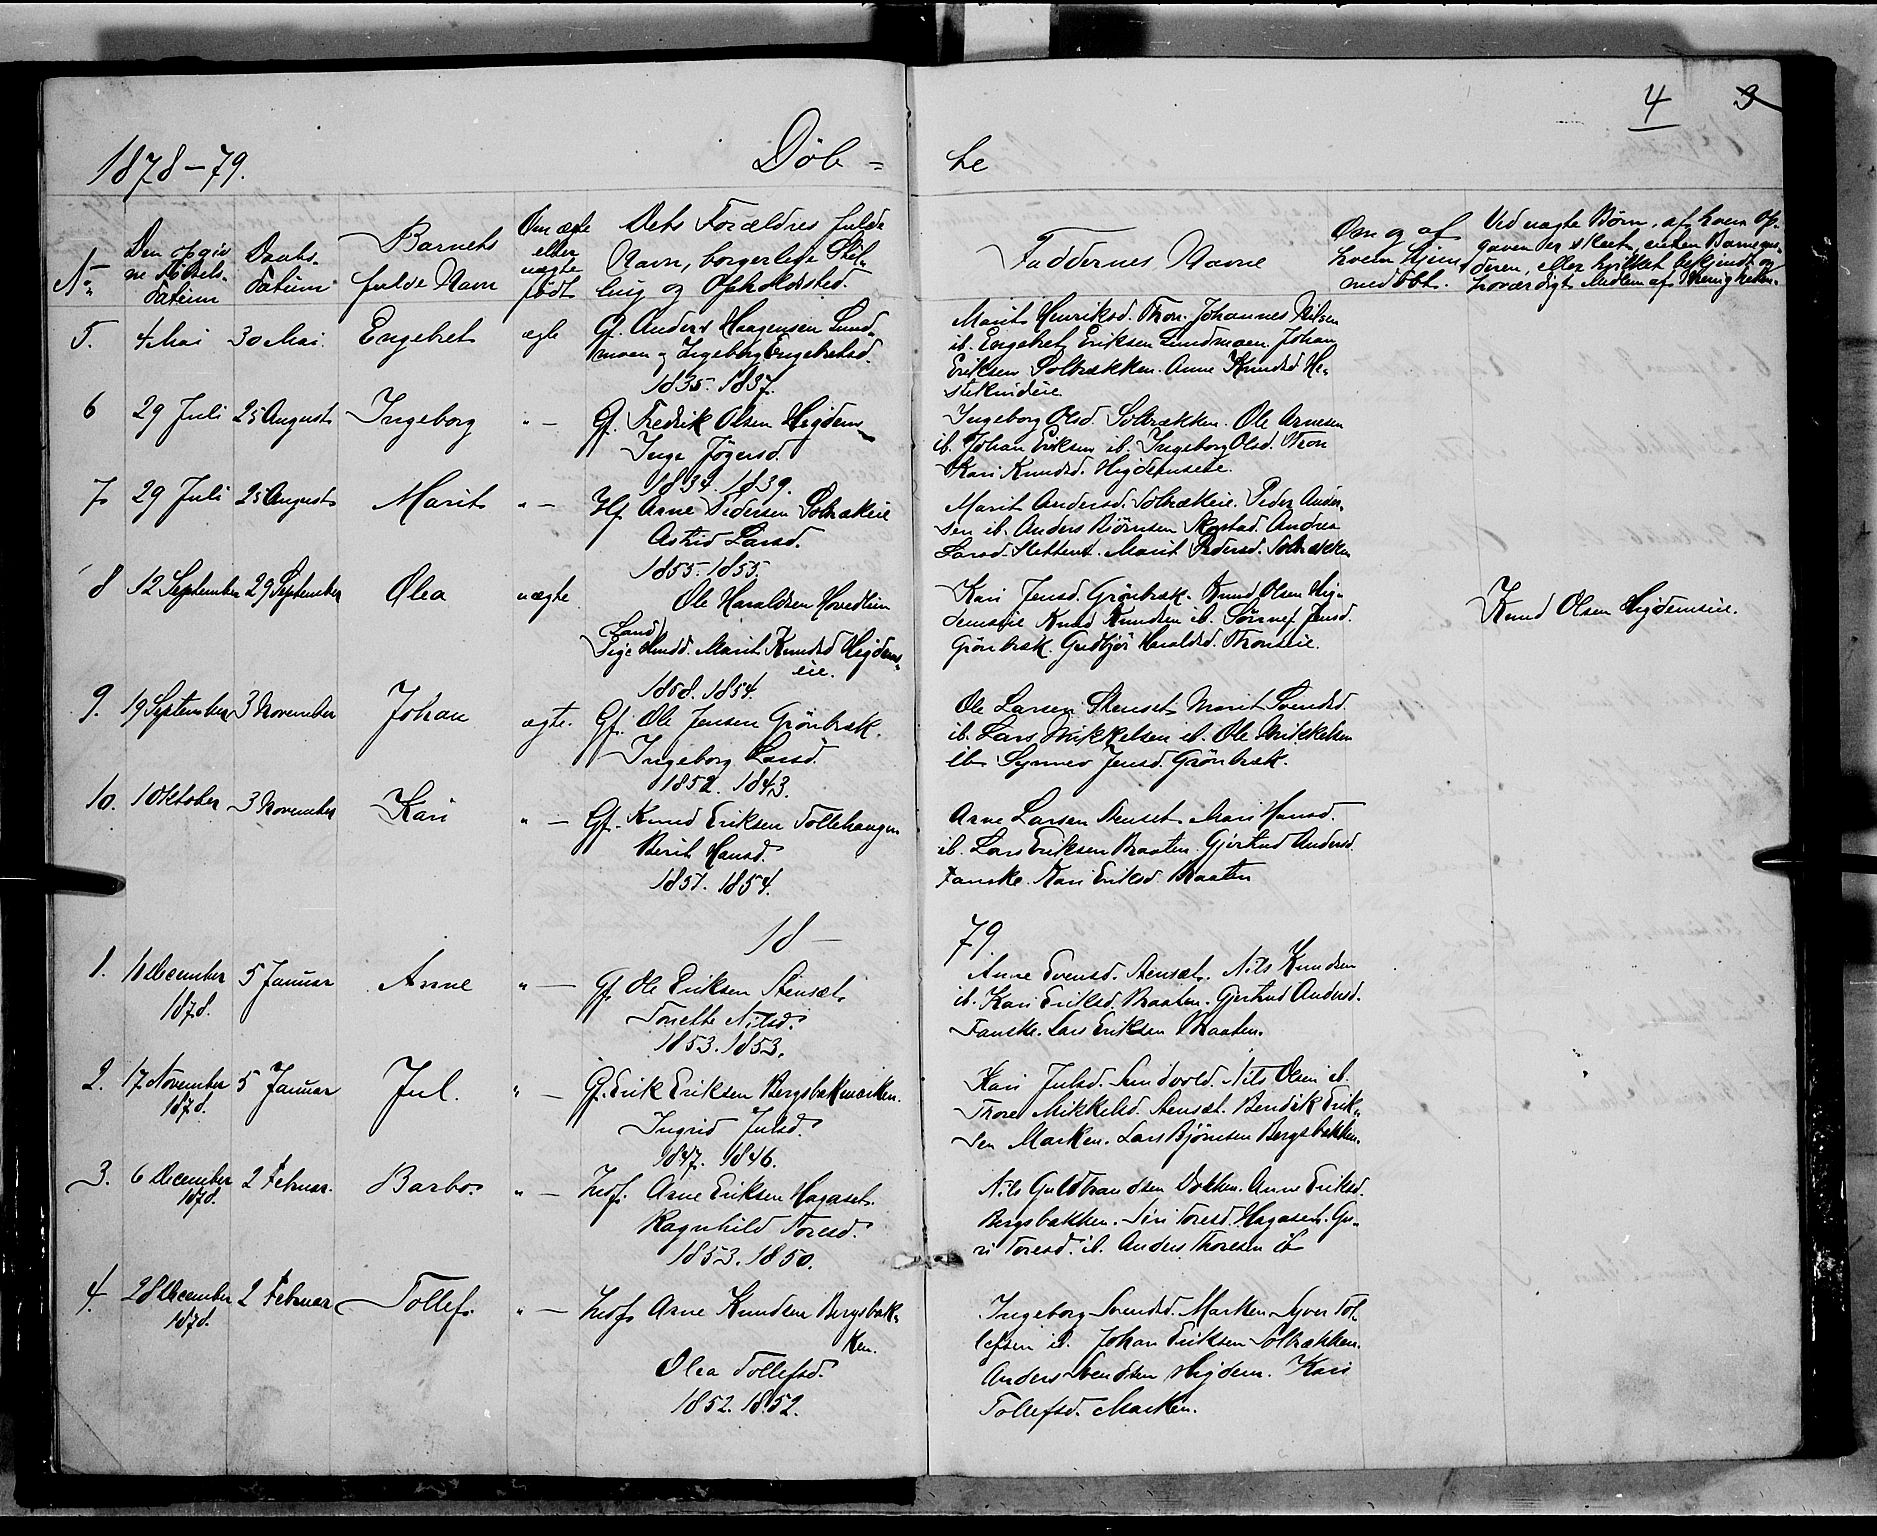 4 3
1878–79. Döb= te
No. Den opgiv-
ne Födsels-
datum
Daabs-
datum
Barnets
fulde Navn
Om ægte
eller
uægte
födt
Dets Forældres fulde
Navn, borgerlige Stil-
ling og Opholdssted.
Faddernes Navne
Om og af
hvem hjem
medöbt.
Ved uægte Børn, af hvem Op-
gaven er skeet, enten Barnemo-
deren, eller hvilket bekjendt og
troværdigt Medlem af Menigheden.
5. 4 Mai 30 Mai. Engebret ægte Gf. Anders Haagensen Lund-
moen og Ingeborg Engebretsd.
1835. 1837.
Marit Henriksd. Thon. Johannes Nilsen
ib. Engebret Eriksen Lundmoen. Johan
Eriksen Solbrækken. Anne Knudsd He-
stekindeie
6 29 Juli 25 August Ingeborg " — Gf. Fredrik Olsen Higdem
Inge Jögersd.
1834. 1839.
Ingeborg Olsd. Solbrækken. Ole Arnesen
ib. Johan Eriksen ib. Ingeborg Olsd. Thon
Kari Knudsd. Higdemseie.
7 29 Juli 25 August Marit " — Hf Arne Pedersen Solbrækeie
Astrid Larsd.
1855. 1855.
Marit Andersd. Solbrækeie. Peder Ander-
sen ib. Anders Björnsen Rogstad. Andrea
Larsd Slettent. Marit Pedersd. Solbrækken
8 12 September 29 September Olea uægte Ole Haraldsen Hovedlien
Land
Pige Marit Knudsd Higdems-
eie.
1858. 1854.
Kari Jensd. Grönbræk. Knud Olsen Hig-
demseie Knud Knudsen ib. Sönnef Jensd.
Grönbræk. Gudbjör Haraldsd. Thonseie.
Knud Olsen Higdemseie.
9. 19 September 3 November Johan ægte. Gf. Ole Jensen Grönbræk.
Ingeborg Larsd.
1852. 1843.
Ole Larsen Stenset. Marit Svendsd.
ib. Lars Mikkelsen ib. Ole Mikkelsen
ib Synnev Jensd. Grönbræk.
10. 1 Oktober 3 November Kari " — Gf. Knud Eriksen Tollehaugen
Berit Hansd.
1857. 1854.
Arne Larsen Stenset. Mari Hansd.
ib. Lars Eriksen Braaten. Gjertrud Andersd.
Fanske. Kari Eriksd. Braaten
18— 79.
1. December
1878. 5 Januar Anne " — Gf. Ole Eriksen Stensæt.
Tonette Nilsd.
1853. 1853.
Anne Svensd. Stensæt. Nils Knudsen
ib. Kari Eriksd. Braaten. Gjertrud Andersd.
Fanske. Lars Eriksen Braaten.
2. 17 November
1878. 5 Januar Jul. " — Gf. Erik Eriksen Bergsbakmarken.
Ingrid Julsd.
1847. 1846.
Kari Julsd. Sundvold. Nils Olsen ib.
Thore Mikkelsd. Stensæt. Bendik Erik-
sen Marken. Lars Bjömsen Bergsbakken.
3. 6 December
1878. 2 Februar. Barbo. " — Indf. Arne Eriksen Hagaset.
Ragnhild Toresd.
1853. 1850.
Nils Guldbrandsen Dokken. Anne Eriksd.
Bergsbakken. Siri Toresd. Hagaset. Gu-
ri Toresd. ib. Anders Thoresen ib
4. 28 December
1878. 2 Februar Tollef. " — Indf. Arne Knudsen Bergsbak-
ken.
Olea Tollefsd.
1852. 1852.
Ingeborg Svendsd. Marken. Syver Tol-
lefsen ib. Johan Eriksen Solbrækken.
Anders Svendsen Higdem. Kari
Tollefsd. Marken.